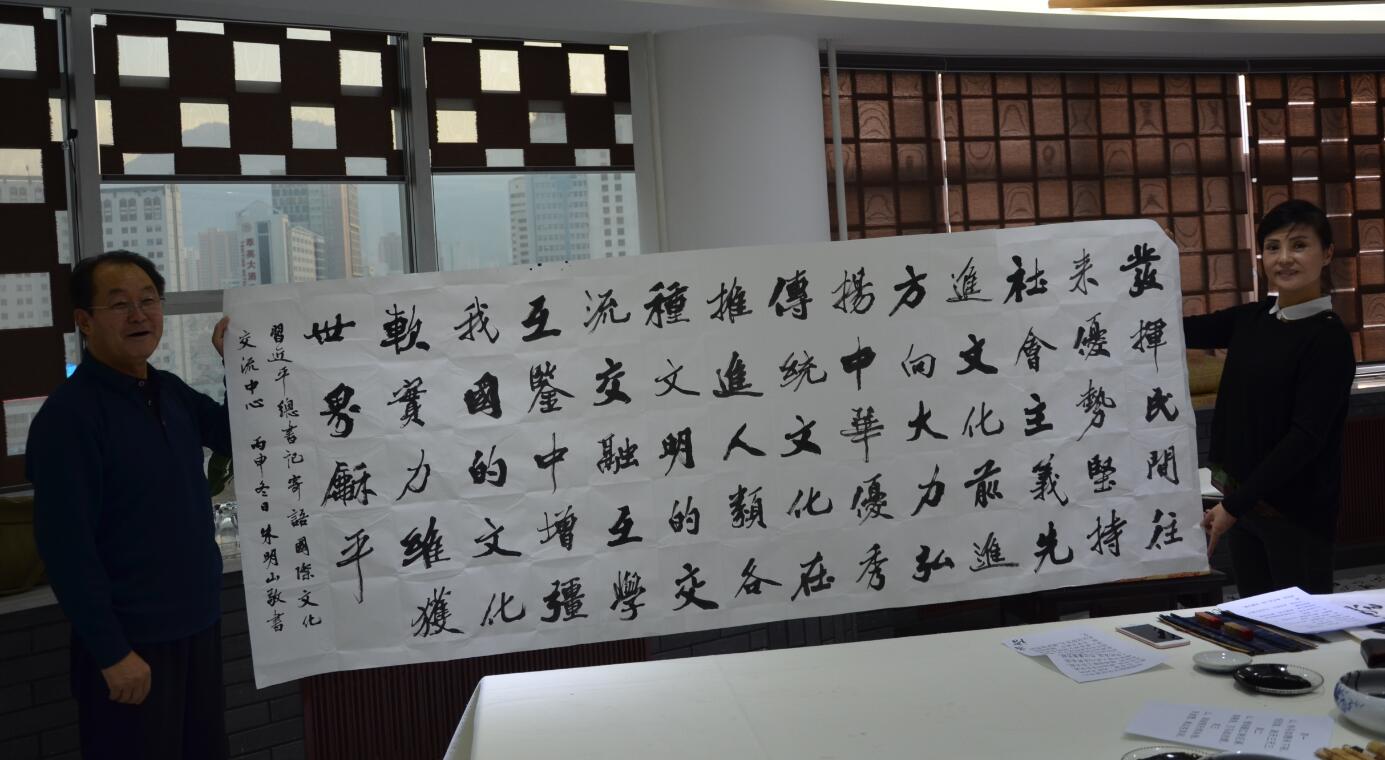 發揮民間往
来優勢堅持
社會主義先
進文化前進
方向大力弘
揚中華優秀
傳統文化在
推進人類各
種文明的交
流交融互學
互鑒中增彊
我國的文化
軟實力維獲
世界龢平
習近平總書記寄語國際文化
交流中心 丙申冬日 朱明山敬書